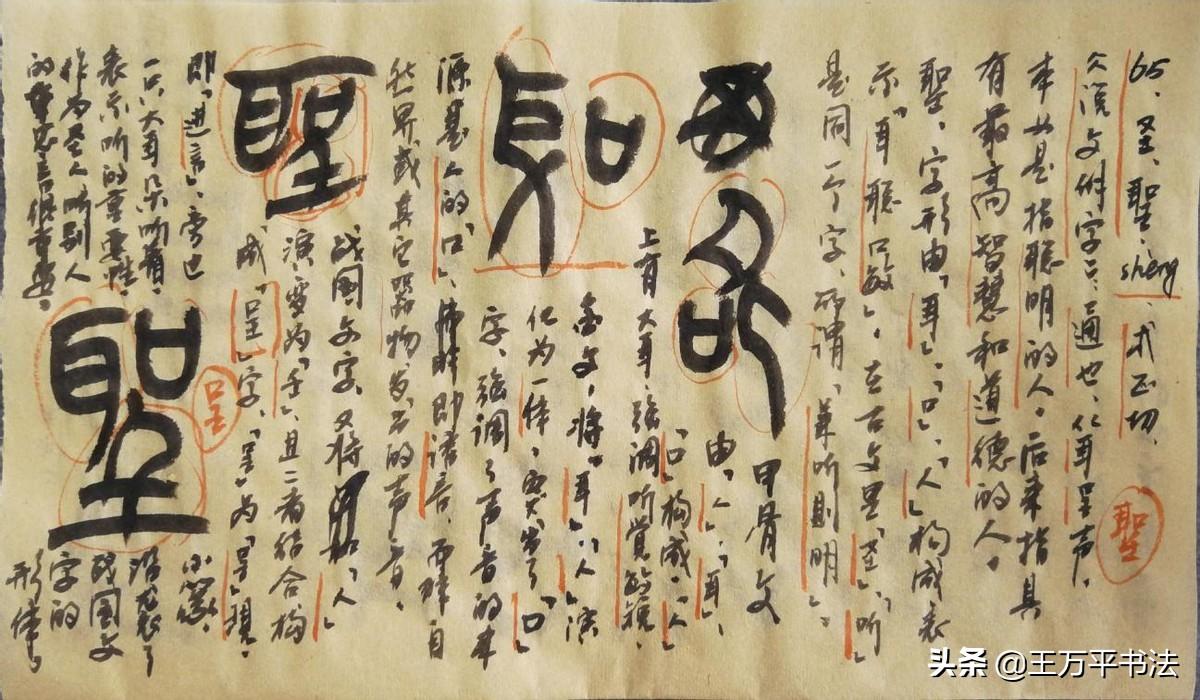 65、圣、聖、sheng、式正切、
《说文解字》：通也、从耳呈声。
聖
本义是指聪明的人。后来指具
有最高智慧和道德的人。
聖、字形由「耳」、「口」、「人」构成表
示「耳聪口敏」。在古文里「圣」、「听」
是同一个字、所谓「兼听则明」。
甲骨文
由「人」、「耳」、
「口」构成。「人」
上有大耳、强调听觉敏锐。
金文，将「耳」、「人」演
化为一体，突出了「口」
字、强调了声音的本
源是人的「口」、佛时即语言，而非自
然界或其它器物发出的声音。
聖
战国文字、又将「人」
演变为「壬」、且二者结合构
成「呈」字、「呈」为「呈」现、
即「进言」、旁边
一只大耳朵听着、
表示听的重要性、
作为圣人听别人
的意思言很重要。
聖
呈
小篆、
沿袭了
战国文
字的
形体。
头条 @王万平书法